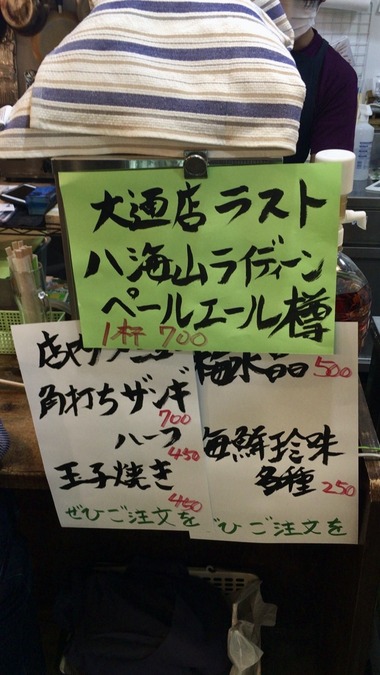 大通店ラスト
八海山ライディーン
ペールエール樽
1杯 700
角打ちザンギ
700
ハーフ
450
玉子焼き
450
ぜひご注文を
梅水晶
500
海鮮珍味
各種 250
ぜひご注文を